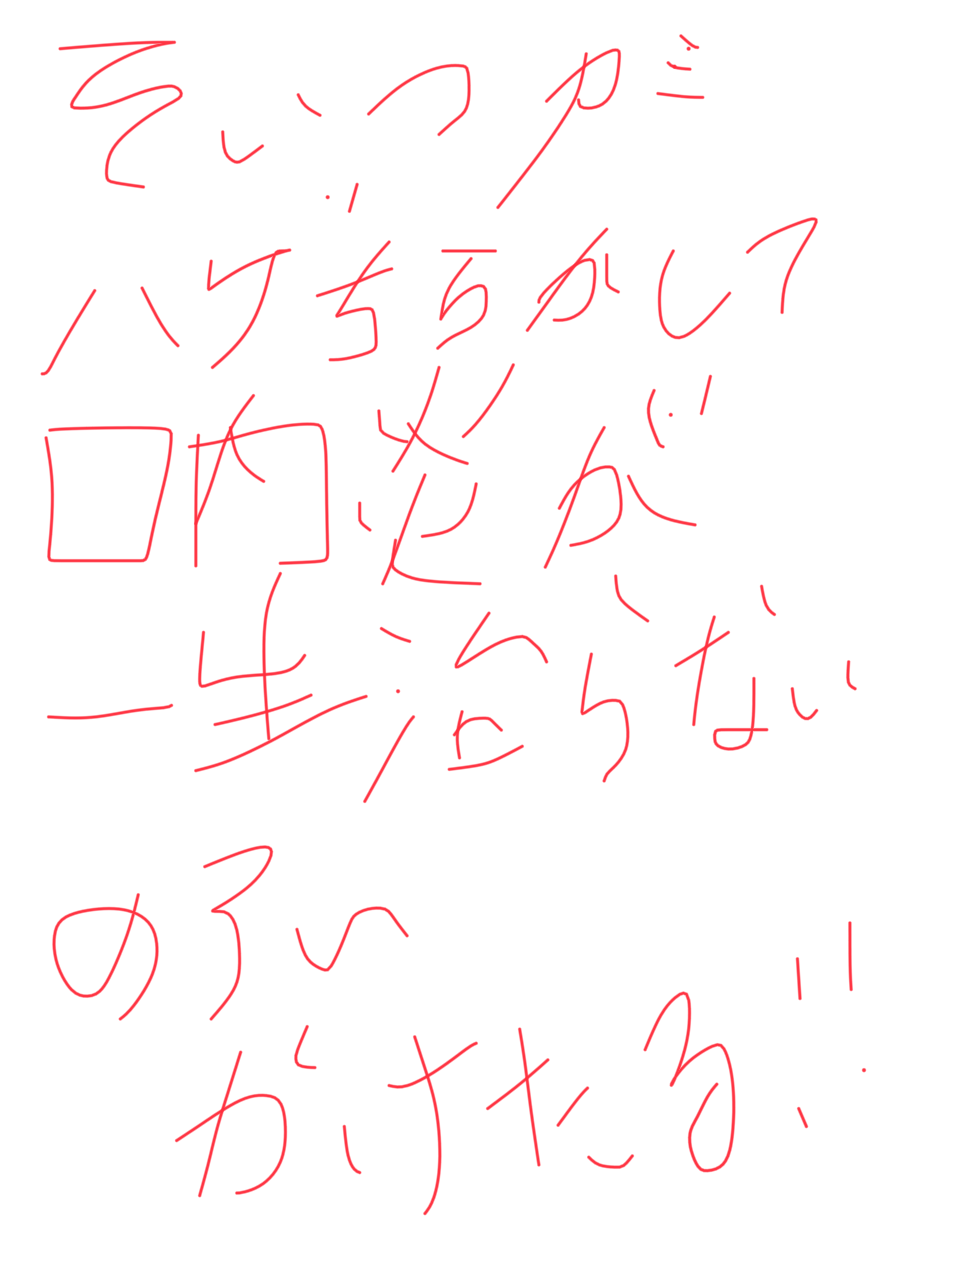 そいつがミ
ハゲちらかして
口内炎が
一生治らない
のろい
がけたる!!